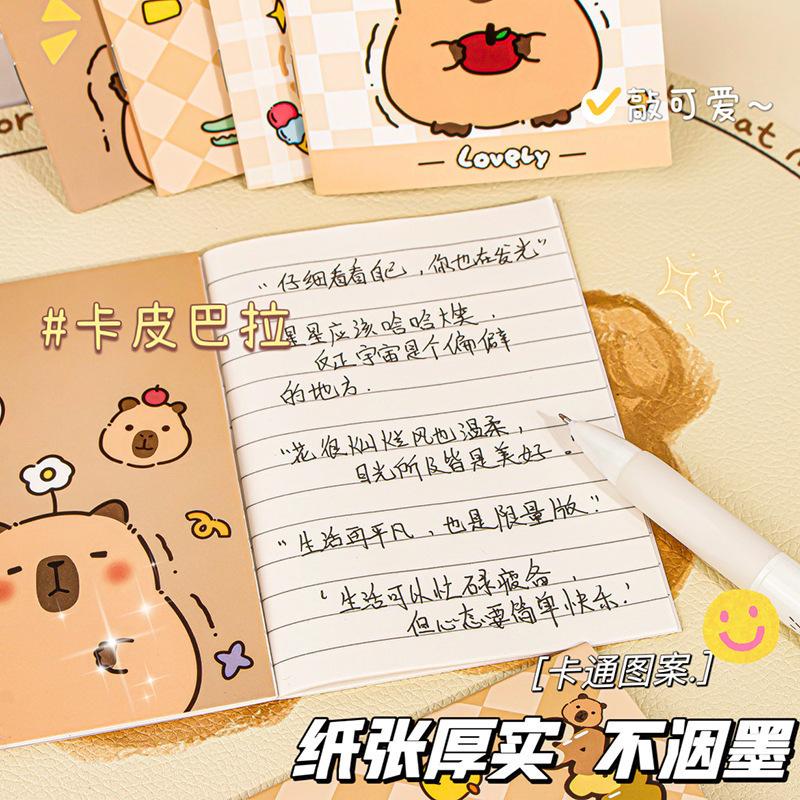 敲可爱~
LOVELY
#卡皮巴拉
"仔细看看自己，你也在发光"
星星应该哈哈大笑，
反正宇宙是个偏僻
的地方.
"花很灿烂风也温柔，
目光所及皆是美好！
"生活再平凡，也是限量版！"
"生活可以忙碌疲备，
但心态要简单快乐！
[卡通图案.]
纸张厚实 不洇墨